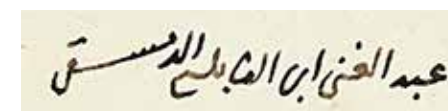 عبد الغنى ابن النابلسى الدمشقى